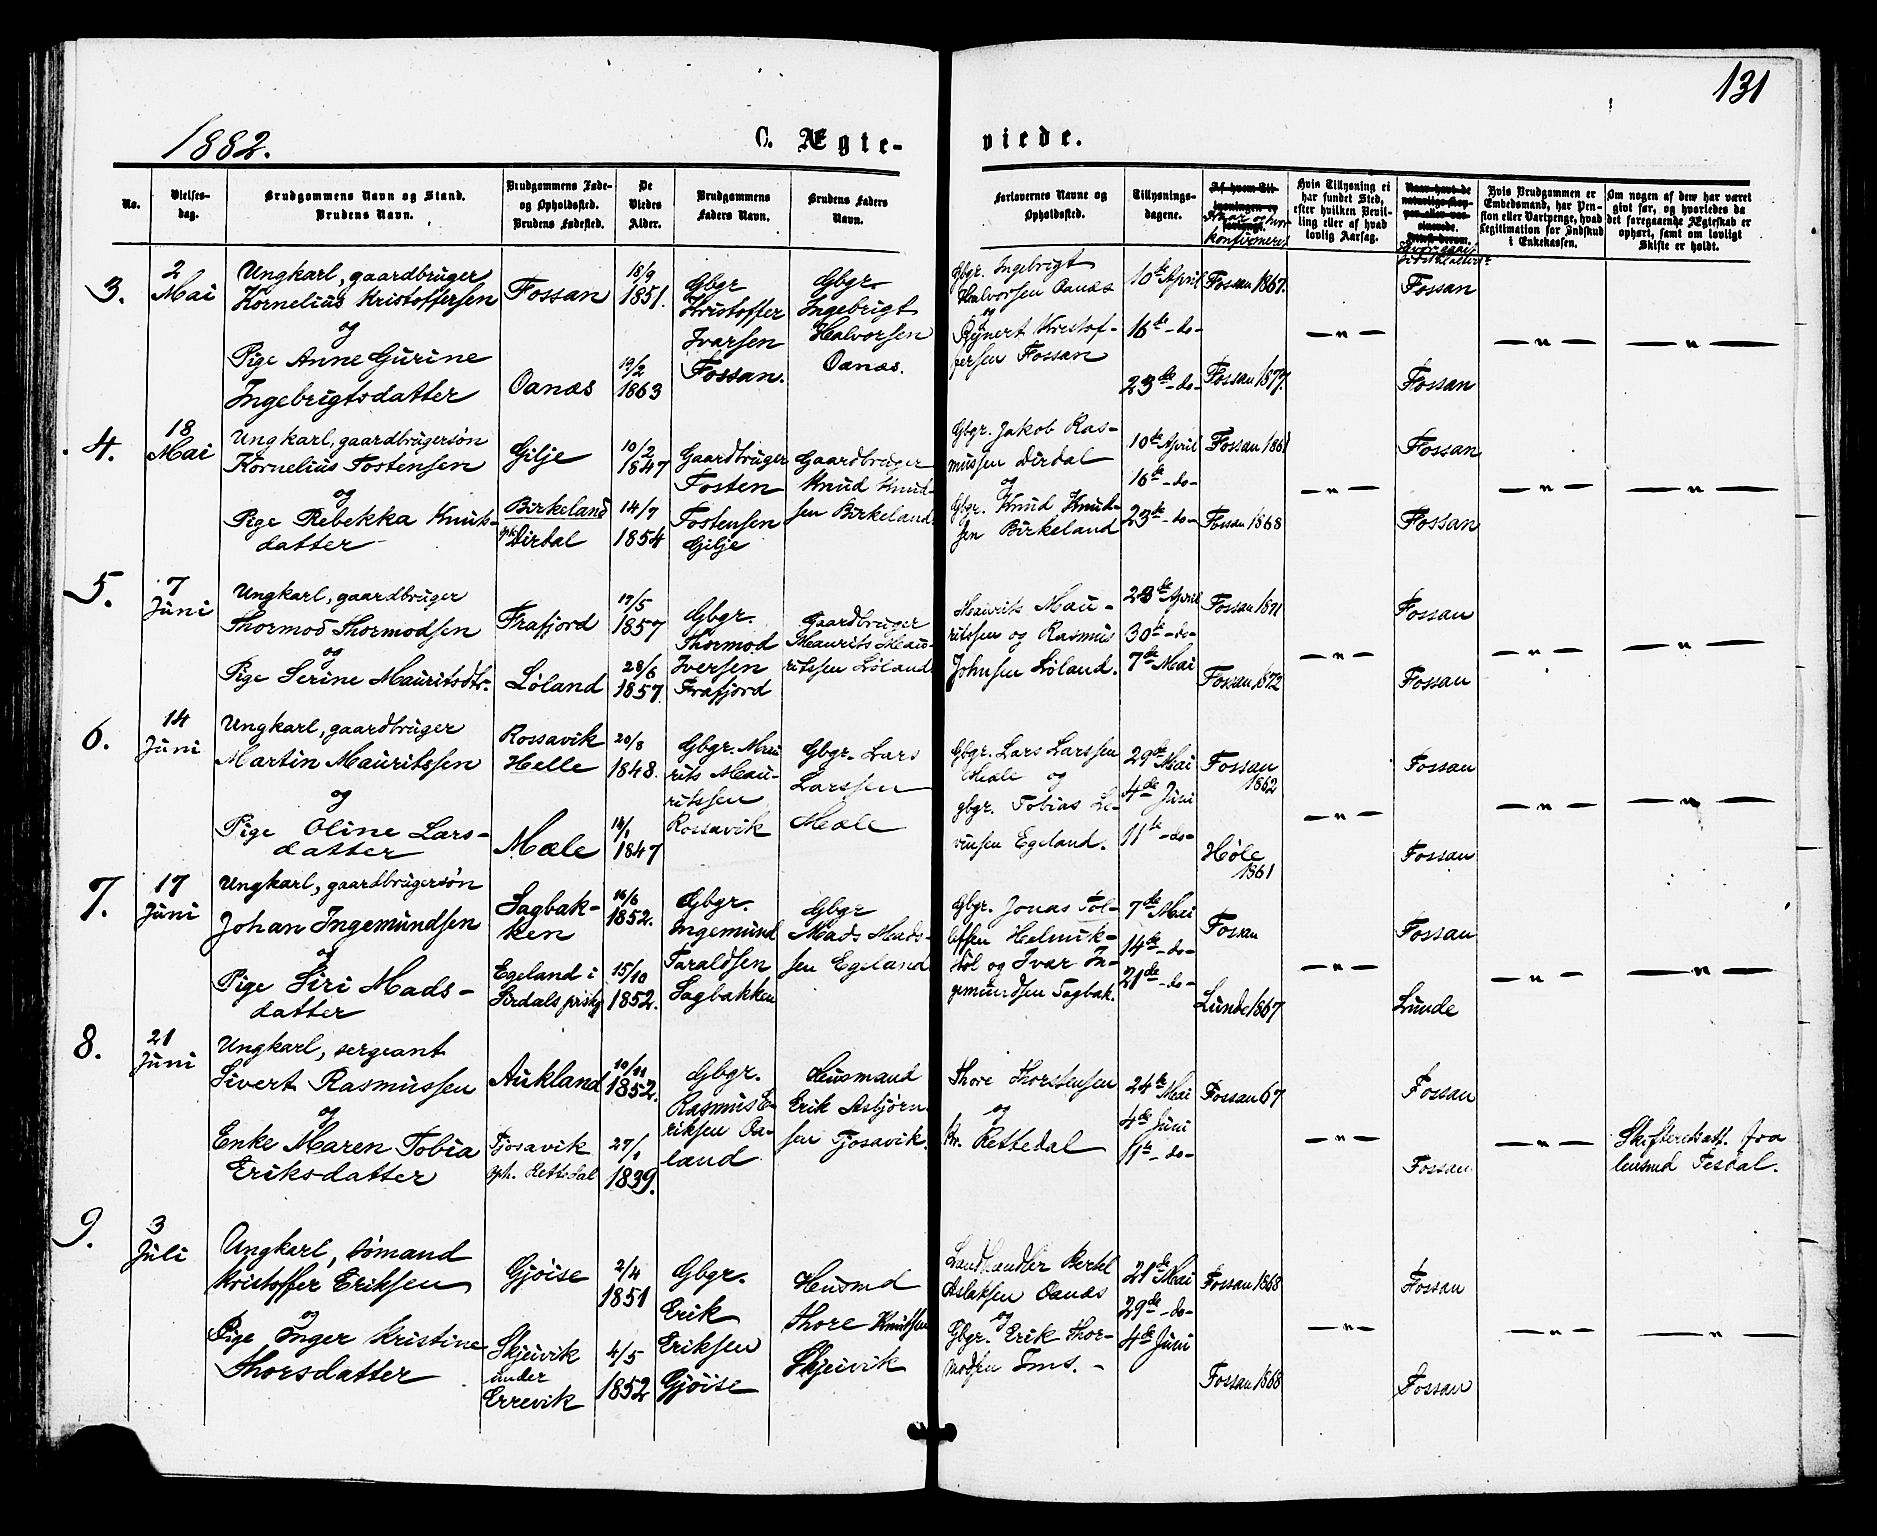 131
1882.
C. Ægte-
viede.
No.
Vielses-
dag.
Brudgommens Navn og Stand.
Brudens Navn.
Brudgommens Føde-
og Opholdssted.
Brudens Fødested.
De
Viedes
Alder.
Brudgommens
Faders Navn.
Brudens Faders
Navn.
Forlovernes Navne og
Opholdssted.
Tillysnings-
dagene.
Af hvem Til-
lysningen er
konfirmeret
Hvis Tillysning ei
har fundet Sted,
efter hvilken Bevil-
ling eller af hvad
lovlig Aarsag.
Naar havt de
naturlige Kop-
per eller vac-
cinerede.
Attest derom.
Hvis Brudgommen er
Embedsmand, har Pen-
sion eller Vartpenge, hvad
Legitimation for Indskud
i Enkekassen.
Om nogen af dem har været
givt før, og hvorledes da
det foregaaende Ægteskab er
ophørt, samt om lovligt
Skifte er holdt.
3.
2
Mai
Ungkarl, gaardbruger
Kornelius Kristoffersen
og
Pige Anne Gurine
Ingebrigtsdatter
Fossan
Oanæs
18/9
1851.
19/2
1863
Gbgr
Kristoffer
Ivarsen
Fossan.
Gbgr.
Ingebrigt
Halvorsen
Oanæs.
Gbgr. Ingebrigt
Halvorsen Oanæs
og
Rejnert Kristof-
fersen Fossan
10de April
16de -do-
23de -do-
Fossan 1867.
Fossan 1877.
— " —
Fossan
Fossan
— " —
— " —
4.
18
Mai
Ungkarl, gaardbrugersøn
Kornelius Tostensen
og
Pige Rebekka Knuts-
datter
Gilje
Birkeland
oph. Dirdal
10/2
1847
14/7
1854
Gaardbruger
Tosten
Tostensen
Gilje
Gaardbruger
Knud Knud-
sen Birkeland
Gbgr. Jakob Ras-
mussen Dirdal
og
Gbgr. Knud Knud-
sen Birkeland
10de April
16de -do-
23de -do-
Fossan 1861
Fossan 1868
— " —
Fossan
Fossan
— " —
— " —
5.
7
Juni
Ungkarl, gaardbruger
Thormod Thormodsen
og
Pige Serine Mauritsdtr.
Frafjord
Løland
17/5
1857
28/6
1857.
Gbgr.
Thormod
Iversen
Frafjord
Gaardbruger
Maurits Mau-
ritssen Løland
Maurits Mau-
ritssen og Rasmus
Johnsen Løland.
23de April
30te -do-
7de Mai
Fossan 1871
Fossan 1872
— " —
Fossan
Fossan
— " —
— " —
6.
14
Juni
Ungkarl, gaardbruger
Martin Mauritssen
og
Pige Oline Lars-
datter
Rossavik
Helle
Mæle
20/8
1848.
14/1
1847
Gbgr. Mau
rits Mau-
ritssen
Rossavik
Gbgr. Lars
Larssen
Mæle
Gbgr. Lars Larssen
Mæle og
gbgr. Tobias Le-
vinsen Egeland.
29de Mai
4de Juni
11te -do-
Fossan
1862
Høle
1861
— " —
Fossan
Fossan
— " —
— " —
7.
17
Juni
Ungkarl, gaardbrugersøn
Johan Ingemundsen
og
Pige Siri Mads-
datter
Sagbak-
ken
Egeland i
Sirdals prstg
16/6
1852.
15/10
1852.
Gbgr.
Ingemund
Taraldsen
Sagbakken
Gbgr
Mads Mads-
sen Egeland
Gbgr. Jonas Tol-
lefsen Helmik-
støl og Ivar In-
gemundsen Sagbak.
7de Mai
14de -do-
21de -do-
Fossan
Lunde 1867
— " —
Fossan
Lunde
— " —
— " —
8.
21
Juni
Ungkarl, sergeant
Sivert Rasmussen
og
Enke Maren Tobia
Eriksdatter
Aukland
Tjosavik
oph. Rettedal
10/11
1852.
27/1
1839.
Gbgr.
Rasmus E-
riksen Oa-
land
Husmand
Erik Asbjørn
sen Tjosavik.
Thore Thorstensen
og
Rettedal
24de Mai
4de Juni
11te -do-
Fossan 67
— " —
Fossan
Fossan
— " —
Skifteretsatt. fra
lensmd Tesdal.
9.
3
Juli
Ungkarl, sømand
Kristoffer Eriksen
og
Pige Inger Kristine
Thorsdatter
Gjøise
Skjeivik
under
Errevik
2/4
1851
4/5
1852
Gbgr.
Erik
Eriksen
Gjøise
Husmd
Thore Knutsen
Skjeivik
Landhandler Bertel
Aslaksen Oanæs
og
Gbgr. Erik Thor-
modsen Ims. -
21de Mai
29de -do-
4de Juni
Fossan 1868
Fossan 1868
— " —
Fossan
Fossan
— " —
— " —